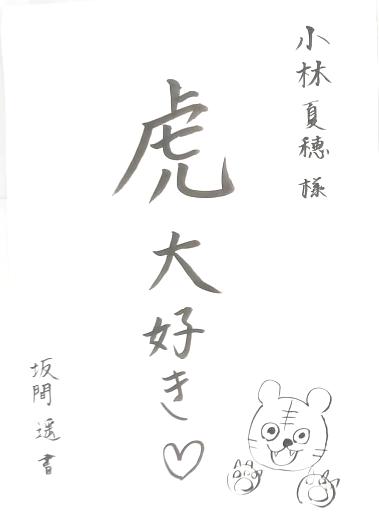 小林夏穂様
虎大好き♡
坂間遥書